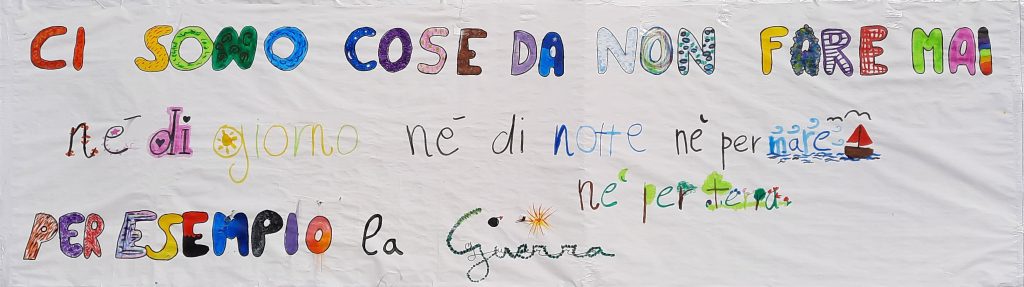 CI SONO COSE DA NON FARE MAI
né di giorno né di notte nè per mare
né per terra
PER ESEMPIO la Guerra